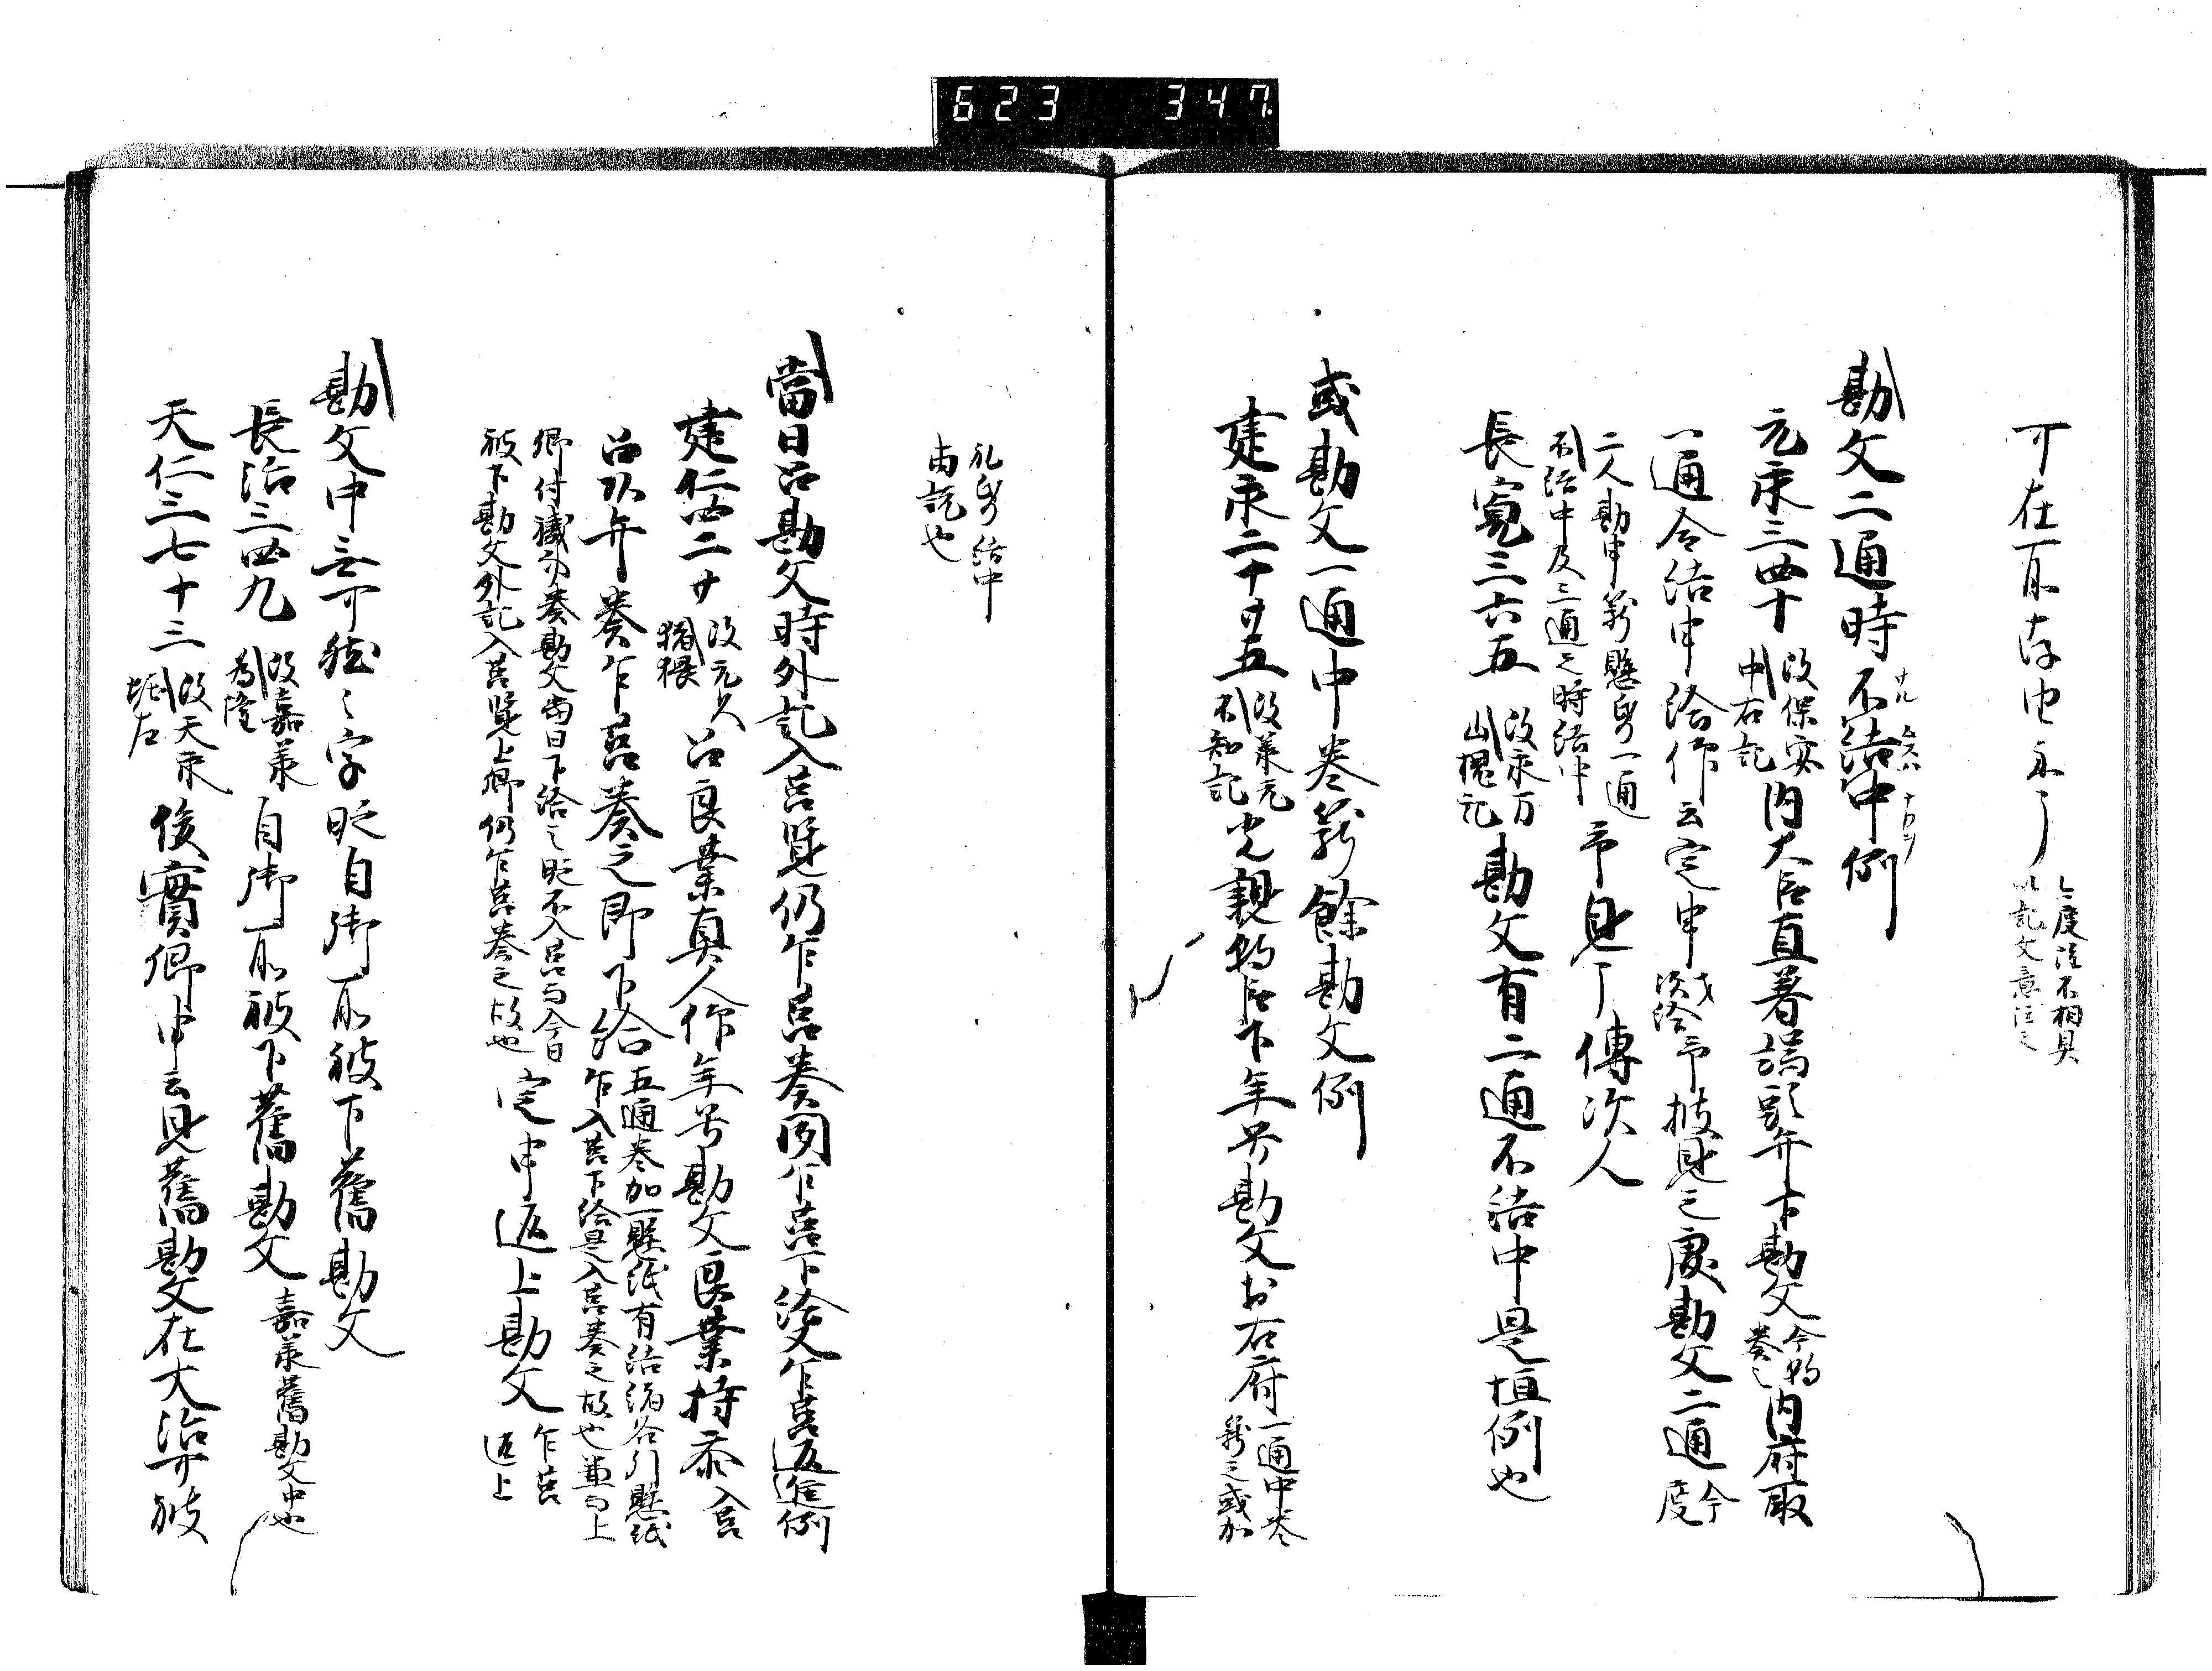 623 347
可在可存由示了
今度注不相具
以記文意注之
勘文二通時不結申例
元永三四十 改保安
中右記 内大臣直着端頭弁下勘文 今朝
奏之 内府取
一通令結申給作云定申 次
給 予披見之處勘文二通 今
度
二人勘申籠懸紙一通
不結申及三通之時結申 予見了傳次人
長寬三六五 改永万
山槐記 勘文有二通不結申是恒例也
或勘文一通中卷籠餘勘文例
建永二十廿五 改承元
不知記 光親朝臣下年号勘文於右府 一通中卷
籠之或加
礼紙結申
由記也
當日召勘文時外記入筥覽仍乍筥奏聞乍筥下給又乍筥返進例
建仁四二廿 改元久
猪隈 召良業真人仰年号勘文良業持参 入筥
召以弁奏乍筥奏之即下給 五通卷加一懸紙有結緒各引懸紙
乍入筥下給是入筥奏之故也並上
卿付職事奏勘文當日下給之時不入筥而今日
被下勘文外記入筥覽上卿仍乍筥奏之故也 定申返上勘文 乍筥
返上
勘文中無可然之字時自御所被下舊勘文
長治三四九 改嘉承
為隆 自御所被下舊勘文 嘉承舊勘文中也
天仁三七十三 改天永
堀左 俊實卿申云見舊勘文在大治可被